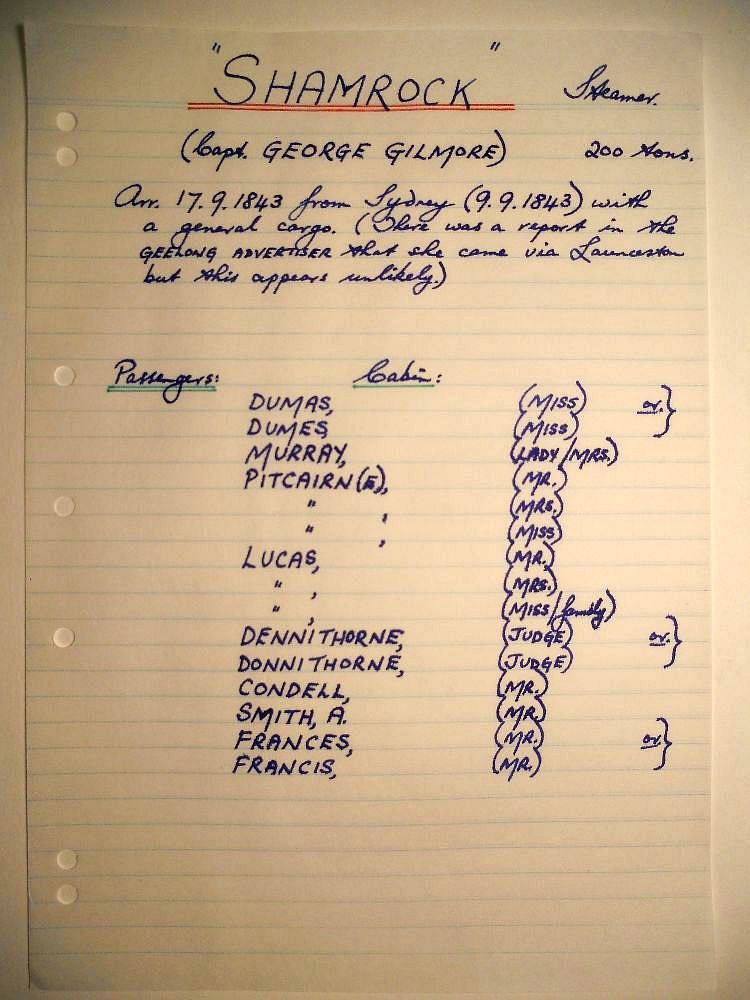 "SHAMROCK" Steamer.
(Capt. GEORGE GILMORE) 200 tons.
Arr. 17.9.1843 from Sydney (9.9.1843) with
a general cargo. (There was a report in the
GEELONG ADVERTISER that she came via Launceston
but this appears unlikely.)
Passengers: Cabin:
DUMAS, (MISS) or }
DUMES, (MISS)
MURRAY, (LADY/MRS.)
PITCAIRN(E), (MR.)
" , (MRS.)
" , (MISS)
LUCAS, (MR.)
" , (MRS.)
" , (MISS/family)
DENNITHORNE, (JUDGE) or. }
DONNITHORNE, (JUDGE)
CONDELL, (MR.)
SMITH, A. (MR.)
FRANCES, (MR.) or }
FRANCIS, (MR.)